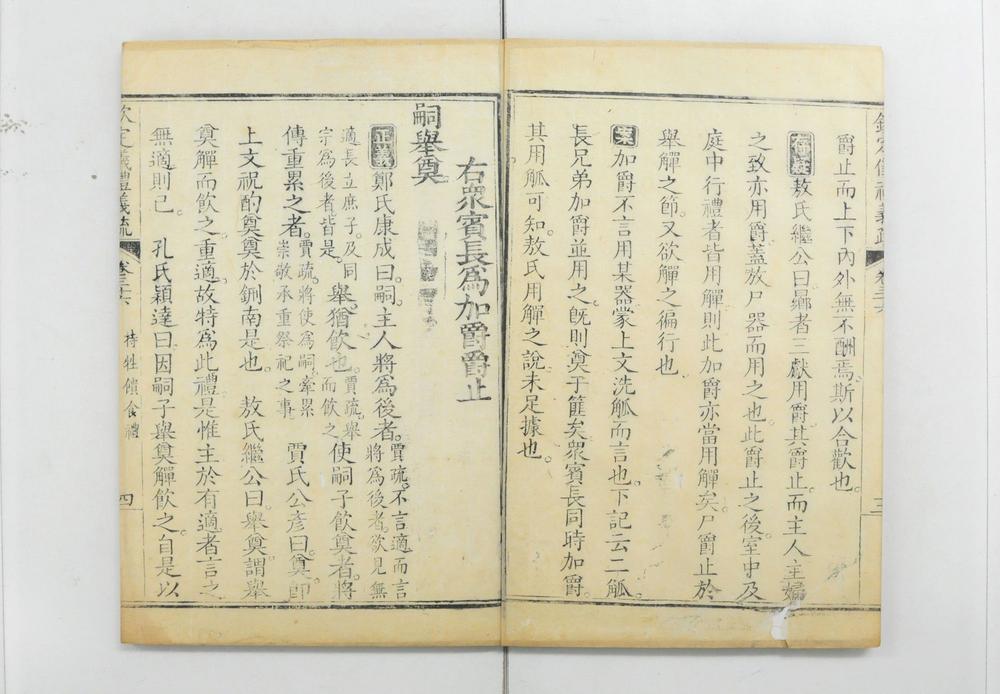 爵止而上下內外無不酬焉斯以合歡也
存疑敖氏繼公曰曏者三獻用爵其爵止而主人主婦
之致亦用爵蓋放尸器而用之也此爵止之後室中及
庭中行禮者皆用觶則此加爵亦當用觶矣尸爵止於
舉觶之節又欲觶之徧行也
案加爵不言用某器蒙上文洗觚而言也下記云二觚
長兄弟加爵並用之旣則奠于篚矣衆賓長同時加爵
其用觚可知敖氏用觶之說未足據也
右衆賓長爲加爵爵止
嗣舉奠
正義鄭氏康成曰嗣主人將爲後者賈疏不言適而言將爲後者欲見無
適長立庶子及同宗爲後者皆是舉猶飮也賈疏舉而飮之使嗣子飮奠者將
傳重累之者賈疏將使爲嗣牽累崇敬承重祭祀之事賈氏公彥曰奠卽
上文祝酌奠奠於鉶南是也 敖氏繼公曰舉奠謂舉
奠觶而飮之重適故特爲此禮是惟主於有適者言之
無適則已 孔氏穎達曰因嗣子舉奠觶飮之自是以
欽定儀禮義疏 卷三十六 特牲饋食禮 四